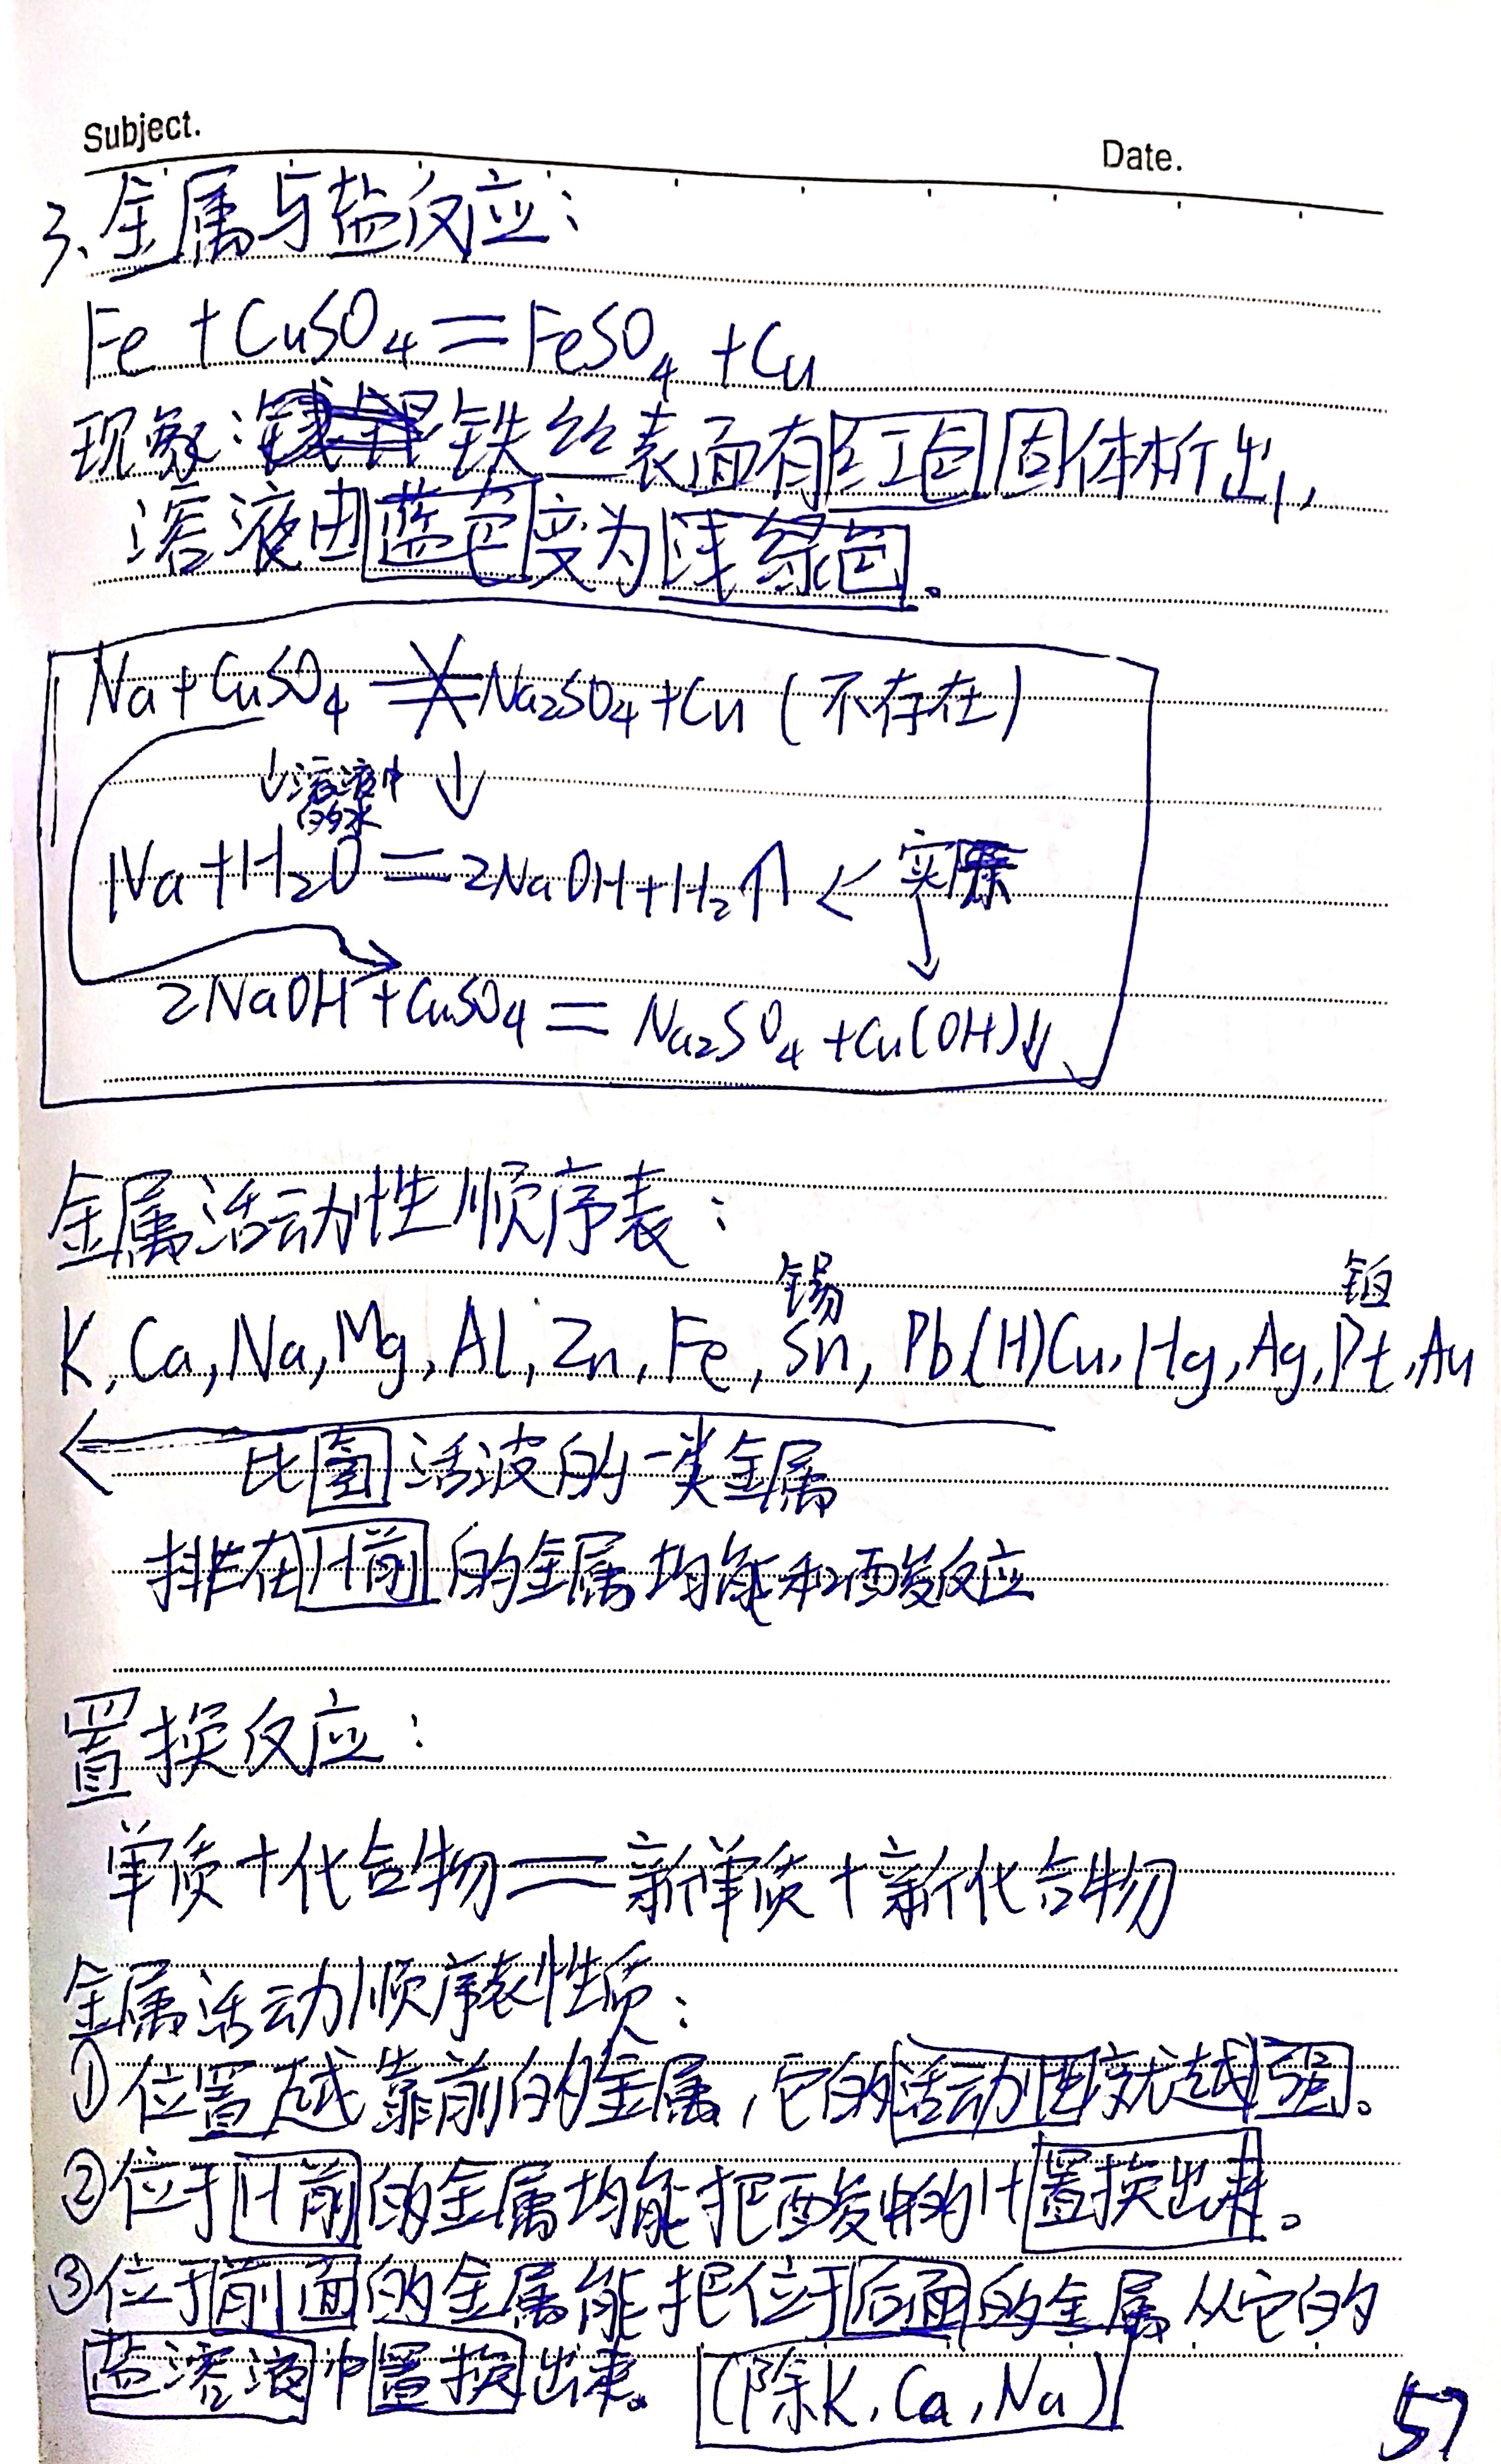 Subject.
Date.
3、金属与盐反应：
Fe + CuSO₄ = FeSO₄ + Cu
现象：铁丝表面有红色固体析出，
溶液由蓝色变为浅绿色。
Na + CuSO₄ = Na₂SO₄ + Cu (不存在)
↓溶液中的水 ↓
Na + H₂O = 2NaOH + H₂↑ ← 实际
2NaOH + CuSO₄ = Na₂SO₄ + Cu(OH)↓
金属活动性顺序表：
锡 铂
K, Ca, Na, Mg, Al, Zn, Fe, Sn, Pb (H) Cu, Hg, Ag, Pt, Au
比氢活波的一类金属
排在H前的金属均能和酸反应
置换反应：
单质+化合物=新单质+新化合物
金属活动顺序表性质：
①位置越靠前的金属，它的活动性就越强。
②位于H前的金属均能把酸中的H置换出来。
③位于前面的金属能把位于后面的金属从它的
盐溶液中置换出来。(除K, Ca, Na)
57